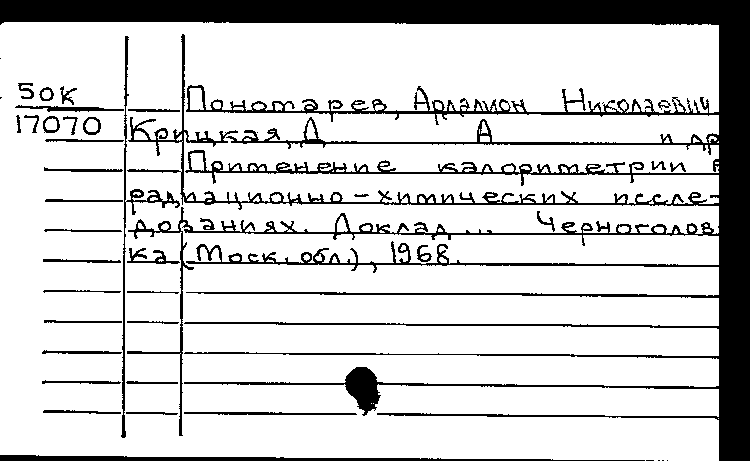 50К
17070
Пономарев, Ардалион Николаевич
Крицкая, Д А и др
Применение калориметрии в
радиационно-химических иссле-
дованиях. Доклад ... Черноголов
ка (Моск. обл.), 1968.